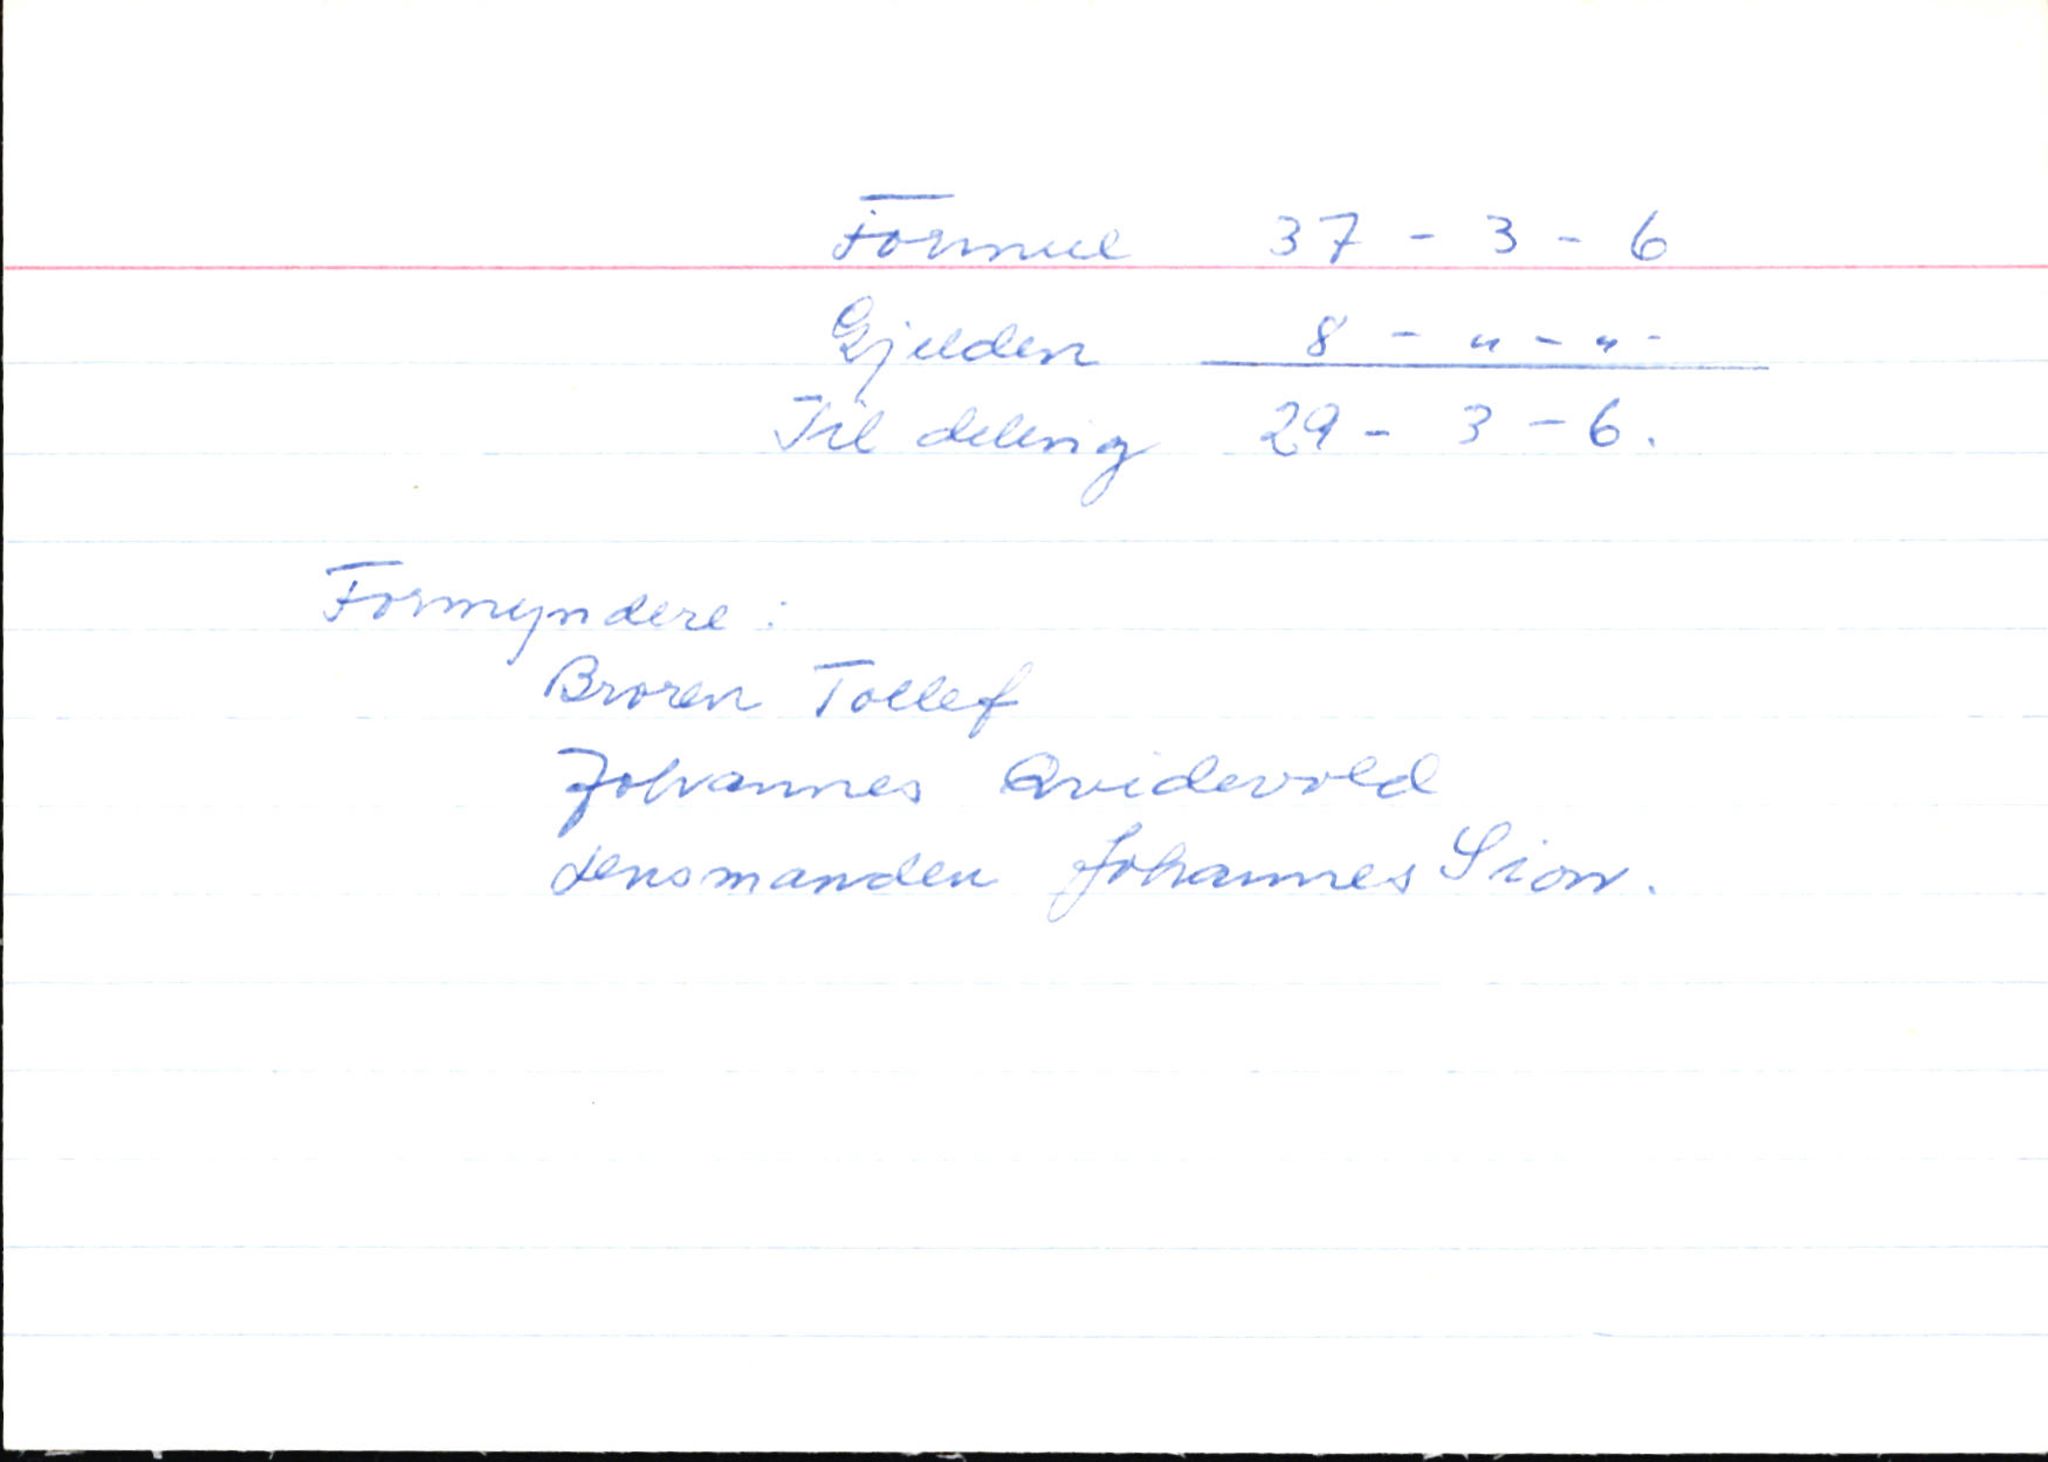 Formue 37 - 3 - 6
Gjelden 8 - " - " -
Til deling 29 - 3 - 6.
Formyndere:
Broren Tollef
Johannes Qvidevold
Lensmanden Johannes Sion.